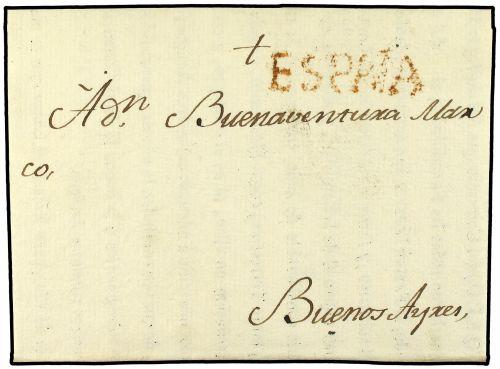 †
ESPAÑA
A dn. Buenaventura Mar
co,
Buenos Ayres,